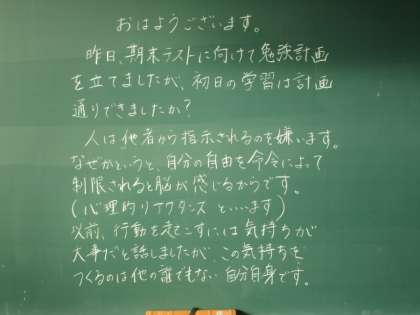 おはようございます。
昨日、期末テストに向けて勉強計画
を立てましたが、初日の学習は計画
通りできましたか？
人は他者から指示されるのを嫌います。
なぜかというと、自分の自由を命令によって
制限されると脳が感じるからです。
(心理的リアクタンス といいます)
以前、行動を起こすには気持ちが
大事だと話しましたが、この気持ちを
つくるのは他の誰でもない自分自身です。